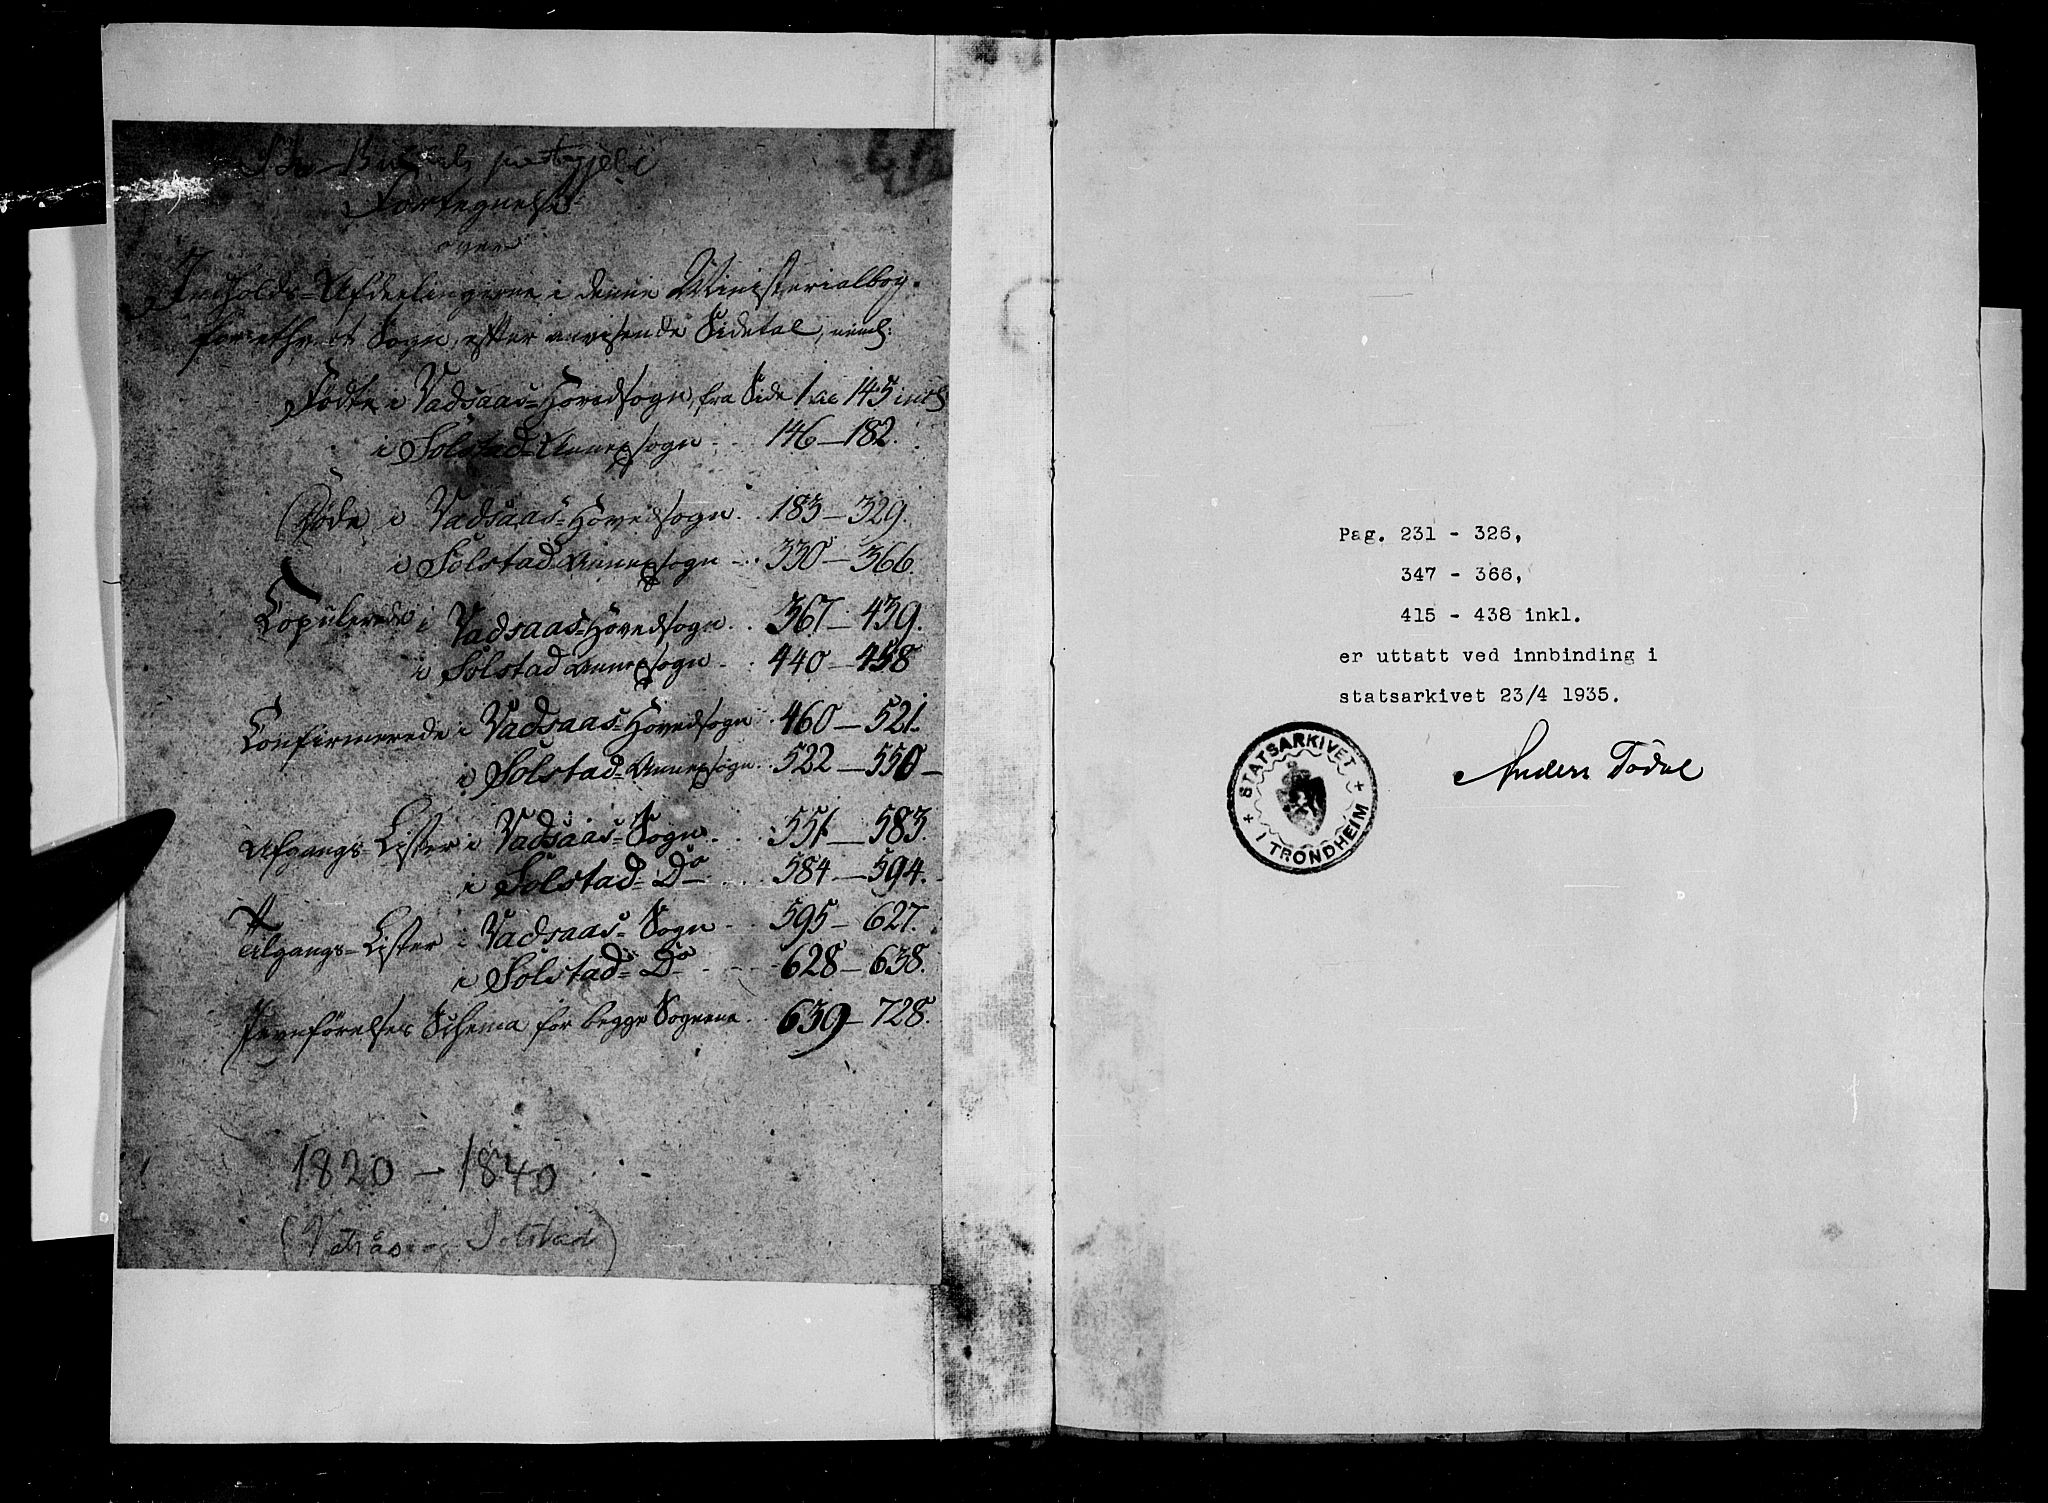 prestegjeld
Fortegnelse
over
Indholds-Afdelingerne i denne Ministerialbog.
for ethvert Sogn, efter anvisende Sidetal, neml:
Fødte i Vadsaas-Hovedsogn, fra Side 1 til 145 incl
i Solstad-Annexsogn - 146 - 182.
Døde i Vadsaas-Hovedsogn. 183 - 329.
i Solstad Annexsogn - 330 - 366.
Copulerede i Vadsaas-Hovedsogn. 367 - 439.
i Solstad Annexsogn - 440 - 458
Confirmerede i Vadsaas-Hovedsogn 460 - 521.
i Solstad-Annexsogn. 522 - 550 -
Afgangs-Lister i Vadsaas-Sogn. 551 - 583.
i Solstad-Do 584 - 594.
Tilgangs-Lister i Vadsaas-Sogn 595 - 627.
i Solstad-Do 628 - 638.
Jevnførelses Schema for begge Sognene. 639 - 728.
1820 - 1840
(Vatsås og Solstad)
Pag. 231 - 326,
347 - 366,
415 - 438 inkl.
er uttatt ved innbinding i
statsarkivet 23/4 1935.
Anders Todal
STATSARKIVET
I TRONDHEIM